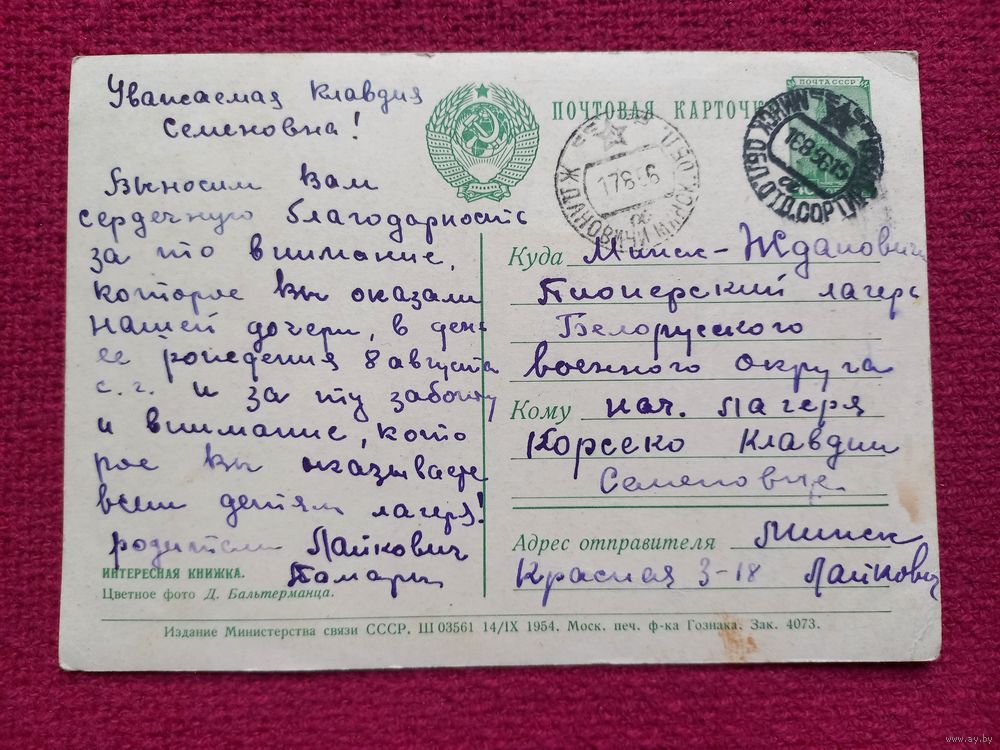 Уважаемая Клавдия
Семеновна!
Выносим Вам
сердечную благодарность
за то внимание,
которое Вы оказали
нашей дочери, в день
ее рождения 8 августа
с. г. и за ту заботу
и внимание, кото
рое Вы оказываете
всем детям лагеря!
родители Лайкович
Тамары
ИНТЕРЕСНАЯ КНИЖКА.
Цветное фото Д. Бальтерманца.
ПОЧТОВАЯ КАРТОЧК
ПОЧТА СССР
17856
ЖДАНОВИЧИ МИНСК. ОБЛ.
МИНСК ОБЛ. ОТД. СОРТ
Куда Минск-Ждановичи
Пионерский лагерь
Белорусского
военного округа
Кому нач. лагеря
Корсеко Клавдии
Семеновне
Адрес отправителя Минск
Красная 3-18 Лайкович
Издание Министерства связи СССР. Ш 03561 14/IX 1954. Моск. печ. ф-ка Гознака. Зак. 4073.
www.ay.by